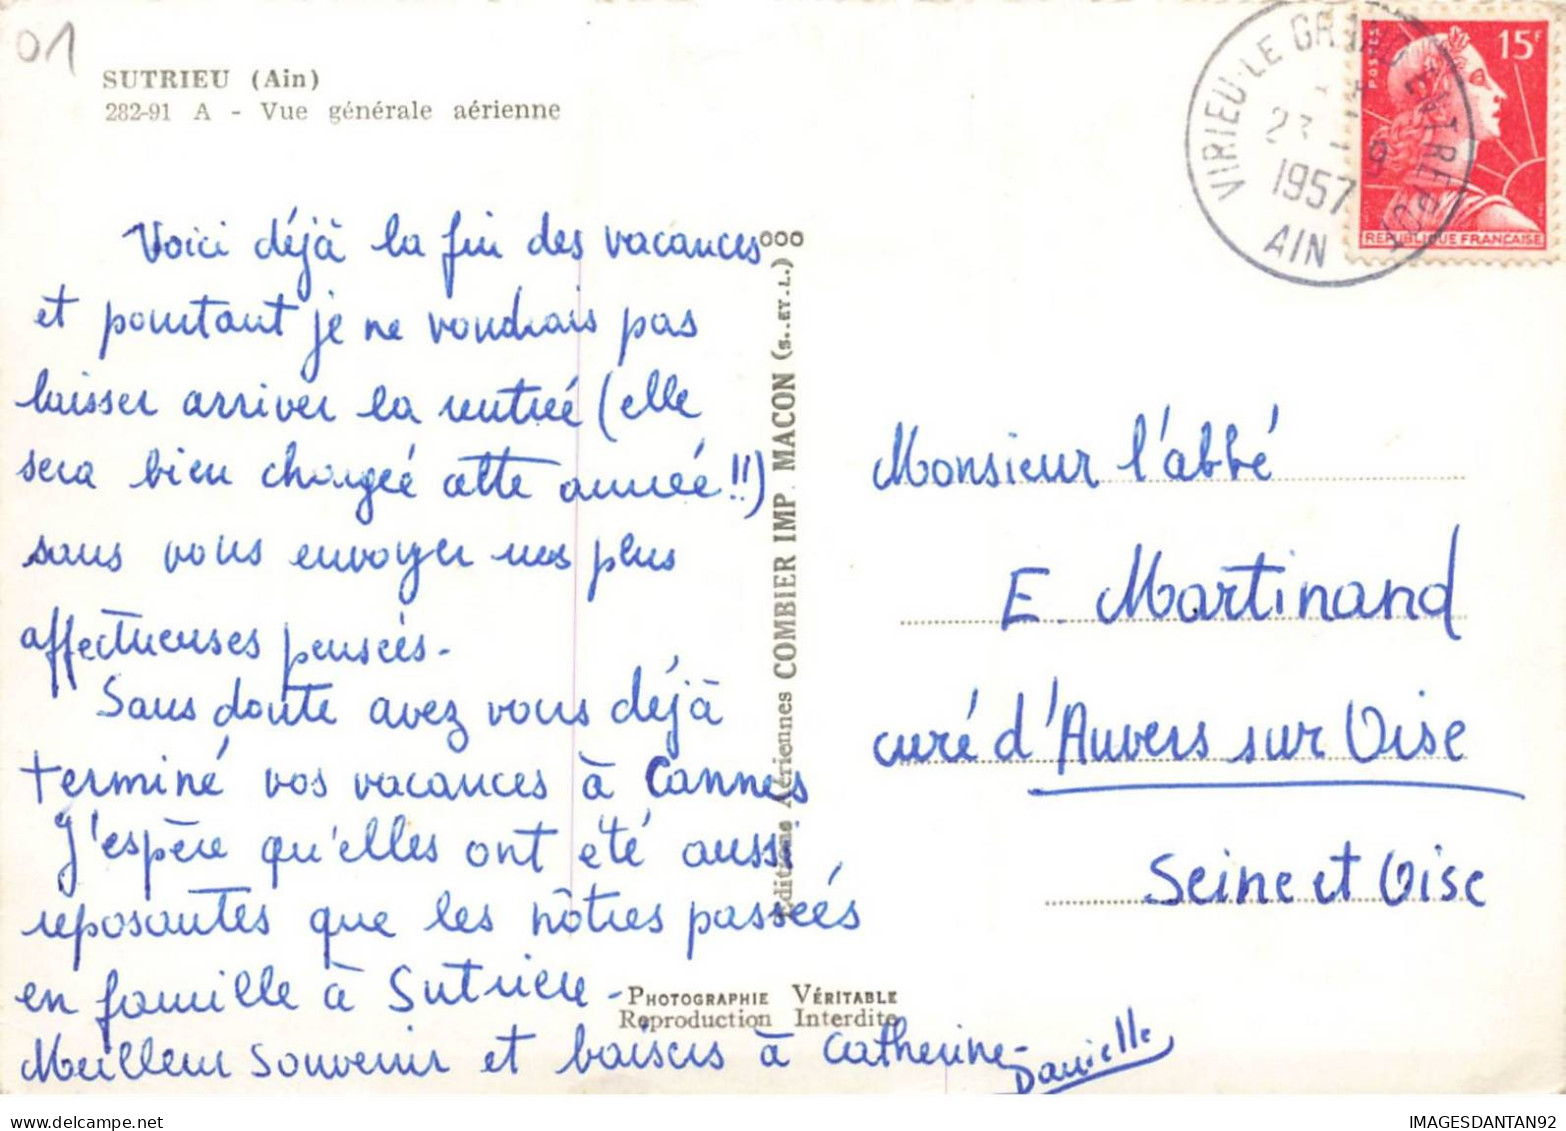 01
SUTRIEU (Ain)
282-91 A - Vue générale aérienne
Voici déjà la fin des vacances
et pourtant je ne voudrais pas
laisser arriver la rentrée (elle
sera bien chargée cette année!!)
sans vous envoyer nos plus
affectueuses pensées.
Sans doute avez vous déjà
terminé vos vacances à Cannes
J'espère qu'elles ont été aussi
reposantes que les nôtres passées
en famille à Sutrieu -
Meilleur souvenir et baisers à Catherine-
Danielle
Editions Aériennes COMBIER IMP. MACON (S.-ET-L.) ooo
PHOTOGRAPHIE VÉRITABLE
Reproduction Interdite
VIRIEU-LE GRAND ENTREPOT
23
9
1957
AIN
POSTES
15F
REPUBLIQUE FRANCAISE
Monsieur l'abbé
E. Martinand
curé d'Auvers sur Oise
Seine et Oise
delcampe.net
IMAGESDANTAN92